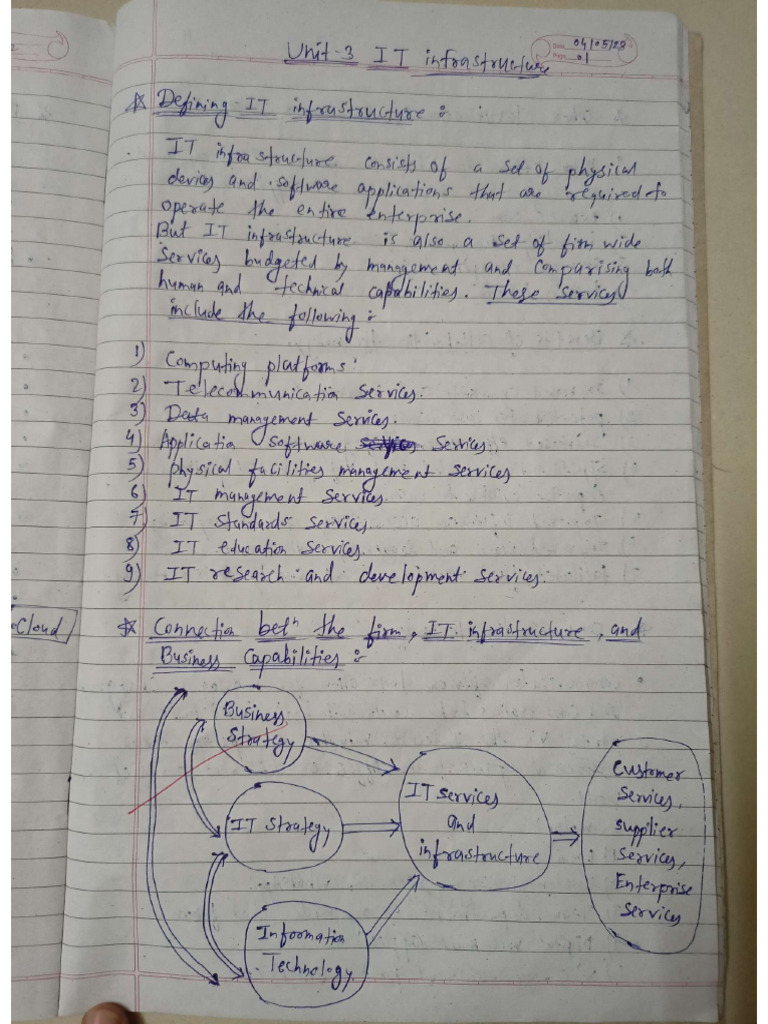 Date 04/05/23
Page 01
Unit-3 IT infrastructure
Defining IT infrastructure :
IT infrastructure consists of a set of physical
devices and software applications that are required to
operate the entire enterprise.
But IT infrastructure is also a set of firm wide
Services budgeted by management and Comparising both
human and technical capabilities. These Services
include the following :
1) Computing platforms.
2) Telecommunication Services.
3) Data management Services.
4) Application Software Services.
5) physical facilities management Services
6) IT management Services.
7) IT Standards Services.
8) IT education Services.
9) IT research and development Services.
Cloud
Connection betn the firm, IT infrastructure, and
Business Capabilities :
Business
Strategy
IT Strategy
Information
Technology
IT Services
and
infrastructure
Customer
Services,
Supplier
Services,
Enterprise
Services